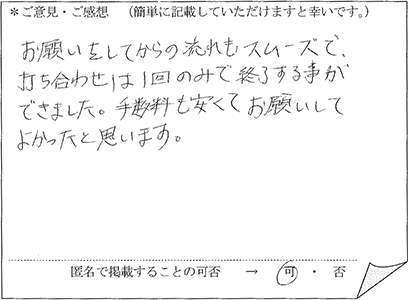 ＊ご意見・ご感想　（簡単に記載していただけますと幸いです。）
お願いをしてからの流れもスムーズで、
打ち合わせは1回のみで終了する事が
できました。手数料も安くてお願いして
よかったと思います。
匿名で掲載することの可否　→　可　・　否